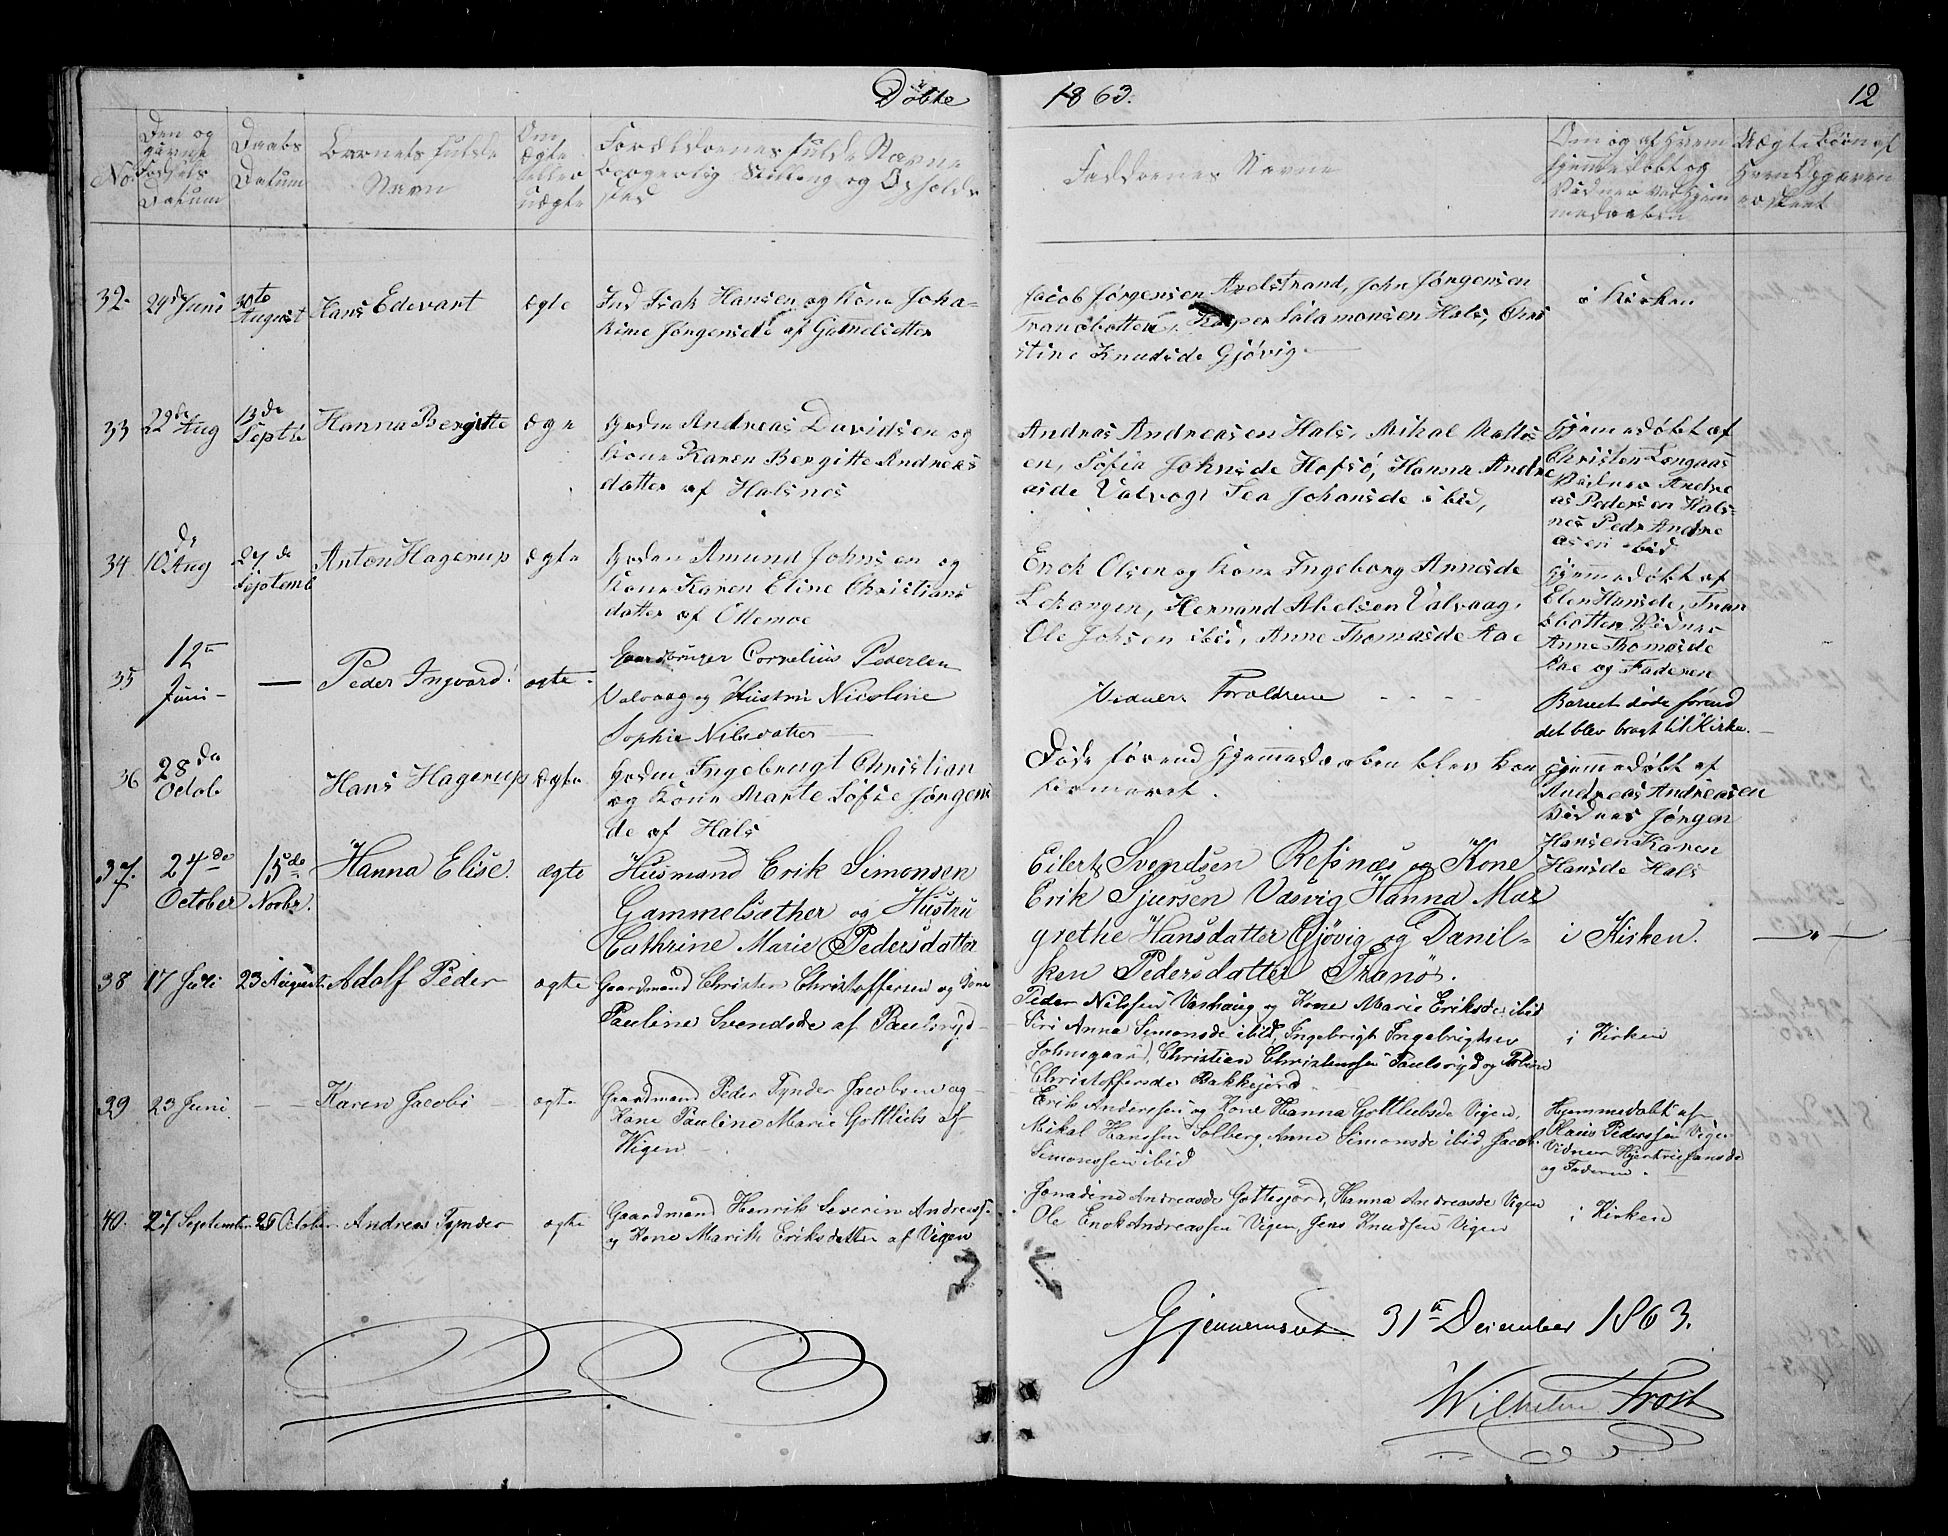 Døbte 1863. 12
No.
Den og
Fødsels
Datum
Daabs
Datum
Barnets fulde
Navn
Om
ægte
eller
uægte
Forældrenes fulde Navne
borgerlig Stilling og Opholds
sted
Faddernes Navne
Om og af Hvem
hjemmedøbt og
Vidner ved Hjem
medaaben
32. 29de Juni 30te August Hans Edevart ægte
Ind Isak Hansen og Kone Joha-
kine Jørgensde af Gamelsetter
Jacob Jørgensen Axelstrand, John Jørgensen
Tranøbotten, Kasper Salamonsen Hals, Chri
stine Knudsde Gjøvig
i Kirken
33 22de Aug 13de Septe Hanna Bergitte ægte
Grdm Andreas Davidsen og
Kone Karen Bergitte Andreas
datter af Halsnes
Andras Andreasen Hals, Mikal
en, Sofia Johnsde Hofsø, Hanna Andre
asde Valvog, Tea Johansde ibid,
Hjemedøbt af
Christen Langaas
Vidner Andre
as Pedersen Hals-
nes Pedr Andre
asen ibid
34 10de Aug 27de Septemb Anton Hagerup ægte
Grdm Amund Johnsen og
Kone Karen Eline Christians
datter af Ottemoe
Enok Olsen og Kone Ingeborg Arnesde
Lekangen, Hernand Abelsen Valvaag,
Ole Johsen ibi, Anne Thomasde Aae
Hjemmedøbt af
Elen Hansde, Tran
øbotten Vidner
Anne Thomasde
Aae og Faderen
35 12te Juni — Peder Ingvard ægte
Gaardbruger Cornelius Pedersen
Valvaag og Hustru Nicoline
Sophie Nilsdatter
Vidner: Forældrene
Barnet døde førend
det blev bragt til Kirke.
36 28de Octob Hans Hagerup ægte
Grdm Ingebrugt Christian
og Kone Marte Sofie Jørgens
de af Hals
Døde førend Hjemmedaaben blev kon
firmeret.
Hjemmedøbt af
Andreas Andreasen
Vidner Jørgen
Hansen Karen
Hansde Hals
37. 24de October 15de Novbr. Hanna Elise. ægte
Husmand Erik Simonsen
Gammelsæther og Hustru
Cathrine Marie Pedersdatter
Eilert Svendsen Refsnæs og Kone
Erik Sjursen Vasvig Hanna Mar
grethe Hansdatter Gjøvig og Danil-
ken Pedersdatter Tranø.
i Kirken.
38 17 Juli 23 August Adolf Peder ægte
Gaardmand Christen Christoffersen og Kone
Pauline Svendsde af Paulsryd
Peder Nilssen Vashaug og Kone Marie Eriksde ibid
Siri Anna Simonsde ibid, Ingebrigt Ingebrigtsen
Johnsgaard, Christian Christensen Paulsryd og
Christoffersde Bakkejord
i Kirken
39 23 Juni. — Karen Jacobi ægte
Gaardmand Peder Tynder Jacobsen og
Kone Pauline Marie Gottliebs af
Wigen
Erik Andersen og Kone Hanna Gottliebsde Vigen,
Mikal Hanssen Solberg, Anne Simonsde ibid, Jacob
Simonssen ibid
Hjemmedøbt af
Hans Pederssen Vigen
Vidner
og Faderen.
40. 27 September 25 October Andreas Tynder ægte
Gaardmand Henrik Severin Andreass.
og Kone Marith Eriksdatter af Vigen
Jonadine Andreasde Gottesjord, Hanna Andreasde Vigen
Ole Enok Andreassen Vigen, Jens Knudsen Vigen
i Kirken
Gjennemseet 31te December 1863.
Wilhelm Frost